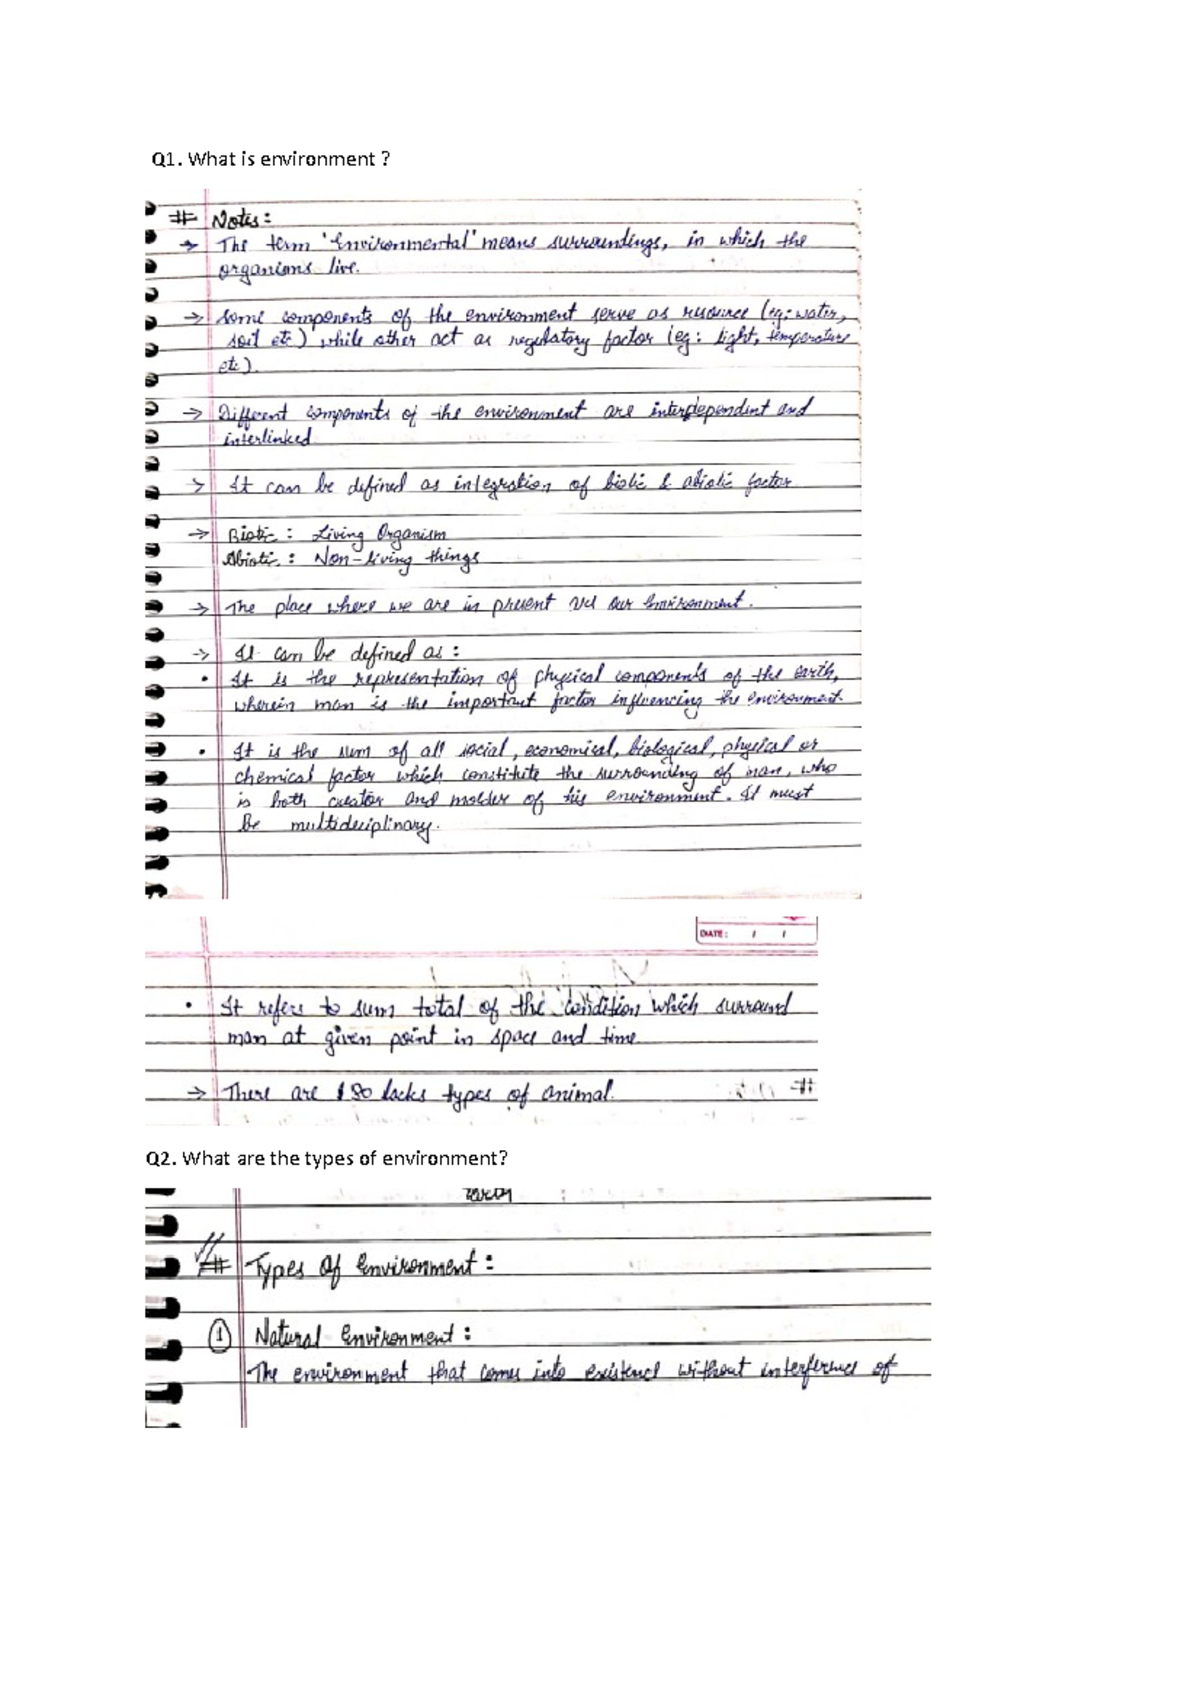 Q1. What is environment ?
# Notes:
→ The term 'Environmental' means surroundings, in which the
organisms live.
→ Some components of the environment serve as resource (eg: water,
soil etc) while other act as regulatory factor (eg: light, temperature
etc).
→ Different components of the environment are interdependent and
interlinked
→ It can be defined as integration of biotic & abiotic factor
→ Biotic : Living Organism
Abiotic : Non-living things
→ The place where we are in present our Environment.
→ It can be defined as :
• It is the representation of physical components of the earth,
wherein man is the important factor influencing the environment.
• It is the sum of all social, economical, biological, physical or
chemical factor which constitute the surrounding of man, who
is both creator and molder of his environment. It must
be multideciplinary.
DATE: / /
• It refers to sum total of the condition which surround
man at given point in space and time
→ There are 80 lacks types of animal.
Q2. What are the types of environment?
# Types of Environment :
① Natural Environment :
The environment that comes into existence without interference of